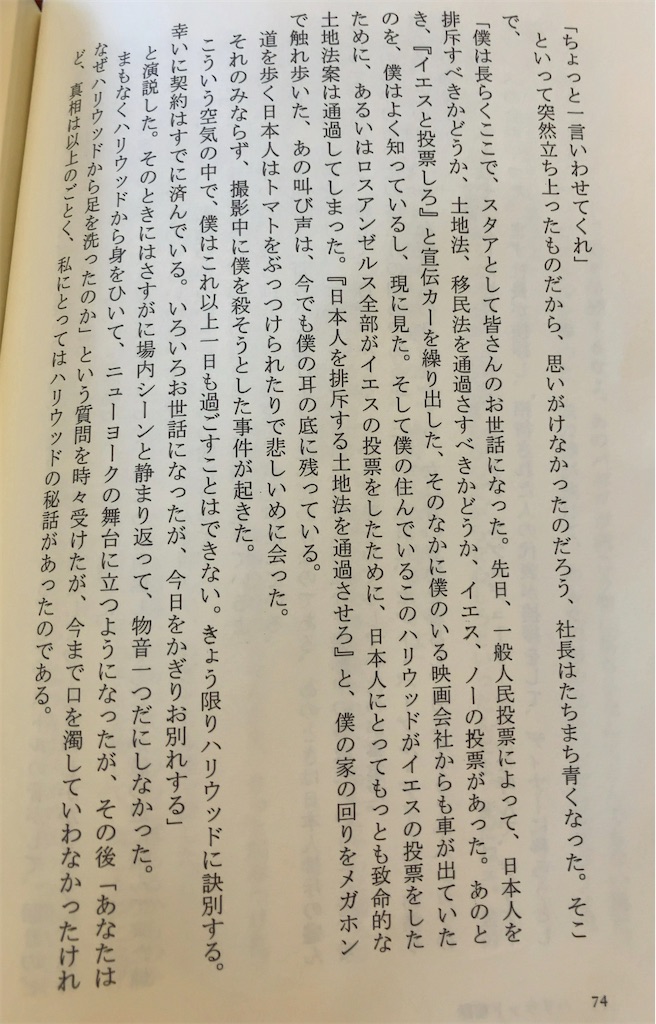 「ちょっと一言いわせてくれ」
といって突然立ち上ったものだから、思いがけなかったのだろう、社長はたちまち青くなった。そこ
で、
「僕は長らくここで、スタアとして皆さんのお世話になった。先日、一般人民投票によって、日本人を
排斥すべきかどうか、土地法、移民法を通過さすべきかどうか、イエス、ノーの投票があった。あのと
き、『イエスと投票しろ』と宣伝カーを繰り出した、そのなかに僕のいる映画会社からも車が出ていた
のを、僕はよく知っているし、現に見た。そして僕の住んでいるこのハリウッドがイエスの投票をした
ために、あるいはロスアンゼルス全部がイエスの投票をしたために、日本人にとってもっとも致命的な
土地法案は通過してしまった。『日本人を排斥する土地法を通過させろ』と、僕の家の回りをメガホン
で触れ歩いた、あの叫び声は、今でも僕の耳の底に残っている。
道を歩く日本人はトマトをぶっつけられたりで悲しいめに会った。
それのみならず、撮影中に僕を殺そうとした事件が起きた。
こういう空気の中で、僕はこれ以上一日も過ごすことはできない。きょう限りハリウッドに訣別する。
幸いに契約はすでに済んでいる。いろいろお世話になったが、今日をかぎりお別れする」
と演説した。そのときにはさすがに場内シーンと静まり返って、物音一つだにしなかった。
まもなくハリウッドから身をひいて、ニューヨークの舞台に立つようになったが、その後「あなたは
なぜハリウッドから足を洗ったのか」という質問を時々受けたが、今まで口を濁していわなかったけれ
ど、真相は以上のごとく、私にとってはハリウッドの秘話があったのである。
74